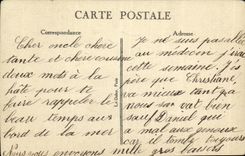 CARTE POSTALE
Correspondance
Adresse
Cher oncle chere
tante et chere cousine
deux mots à la
hâte pour te
faire rappeler le
beau temps au
bord de la mer
Je ne suis pas allé
au médecin j'irai
cette semaine. J'es
père que Christiane
va mieux tant qu'à
nous son va bien
sauf Daniel que
a mal aux genoux
car il tombe toujours
Nous vous envoyons mille gros baisers